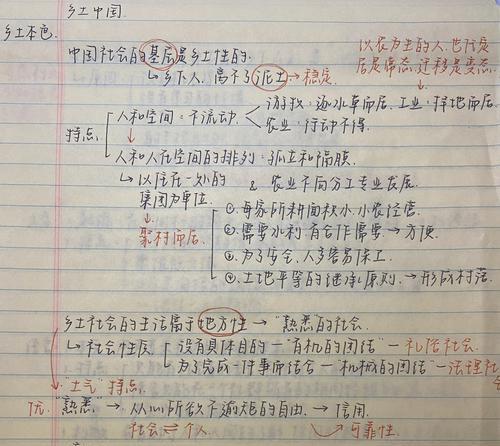 乡土中国.
乡土本色.
中国社会的基层是乡土性的.
以农为生的人,世代定居是常态,迁移是变态.
↳ 乡下人离不了泥土 → 稳定.
特点
人和空间:不流动
游牧:逐水草而居. 工业:择地而居.
农业:行动不得.
人和人在空间的排列:孤立和隔膜.
↳ 以住在一处的集团为单位.
& 农业不向分工专业发展.
聚村而居.
①.每家所耕面积小,小农经营.
②.需要水利,有合作需要 → 方便.
③.为了安全,人多容易保卫.
④.土地平等的继承原则. → 形成村落.
乡土社会的生活富于地方性 → "熟悉"的社会.
↳ 社会性质
没有具体目的 — "有机的团结" — 礼俗社会
为了完成一件事而结合 — "机械的团结" — 法理社会
"土气"特点.
优. "熟悉" → 从心所欲不逾矩的自由. → 信用.
社会 ⇌ 个人
可靠性.